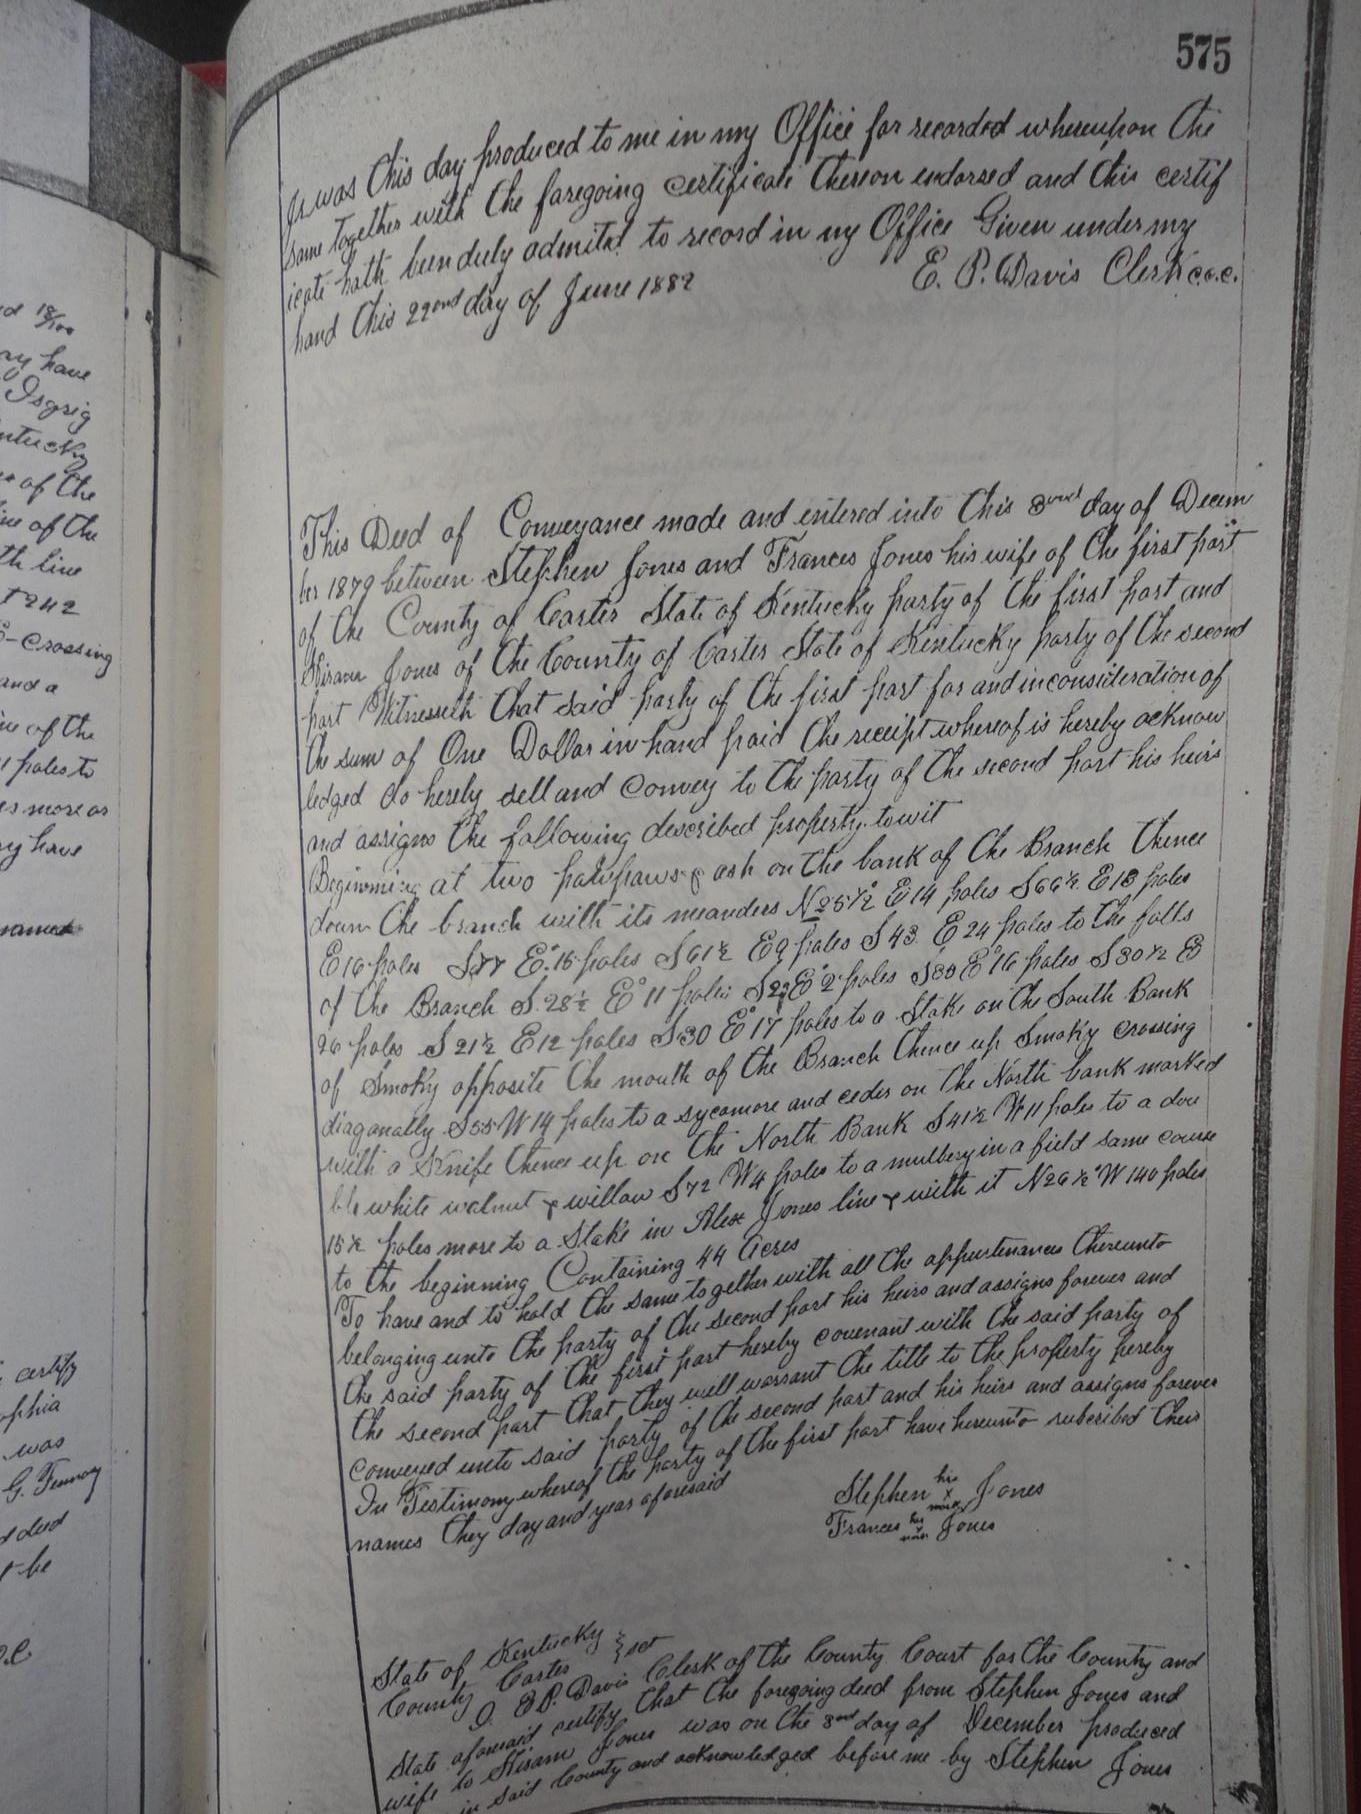 575
Jr was this day produced to me in my Office for recorded whereupon the
same together with the foregoing certificate thereon endorsed and this certif
icate hath been duly admitted to record in my Office Given under my
hand this 22nd day of June 1882 E. P. Davis Clerk C.C.C.
This Deed of Conveyance made and entered into this 3rd day of Decem
ber 1879 between Stephen Jones and Frances Jones his wife of the first part
of the County of Carter State of Kentucky party of the first part and
Hiram Jones of the County of Carter State of Kentucky party of the second
part Witnesseth that said party of the first part for and in consideration of
the sum of One Dollar in hand paid the receipt whereof is hereby acknow
ledged do hereby sell and convey to the party of the second part his heirs
and assigns the following described property towit
Beginning at two pawpaws & ash on the bank of the Branch thence
down the branch with its meanders N 25 1/2° E 14 poles S 66 1/2 E 18 poles
E 16 poles S 77 E° 15 poles S 61 1/2 E 9 poles S 43 E 24 poles to the falls
of the Branch S 28 1/2 E° 11 poles S 22 E° 2 poles S 89 E° 16 poles S 30 1/2 E
26 poles S 21 1/2 E 12 poles S 30 E° 17 poles to a Stake on the South Bank
of Smoky opposite the mouth of the Branch thence up Smoky crossing
diagonally S 55 W 14 poles to a sycamore and ceder on the North bank marked
with a Knife thence up on the North Bank S 41 1/2 W 11 poles to a dou
ble white walnut & willow S 72 W 4 poles to a mulbery in a field same course
15 1/2 poles more to a Stake in Alex Jones line & with it N 26 1/2° W 140 poles
to the beginning Containing 44 Acres
To have and to hold the same together with all the appurtenances thereunto
belonging unto the party of the second part his heirs and assigns forever and
the said party of the first part hereby covenant with the said party of
the second part that they will warrant the title to the property hereby
conveyed unto said party of the second part and his heirs and assigns forever
In Testimony whereof the party of the first part have hereunto subcribed their
names they day and year aforesaid
Stephen his x mark Jones
Frances her x mark Jones
State of Kentucky } sct
County Carter
I E P. Davis Clerk of the County Court for the County and
State aforesaid certify that the foregoing deed from Stephen Jones and
wife to Hiram Jones was on the 3rd day of December produced
in said County and acknowledged before me by Stephen Jones
18/100
have
Isgrig
of the
line
242
crossing
and a
of the
poles to
more or
have
certify
was
G.
deed
be